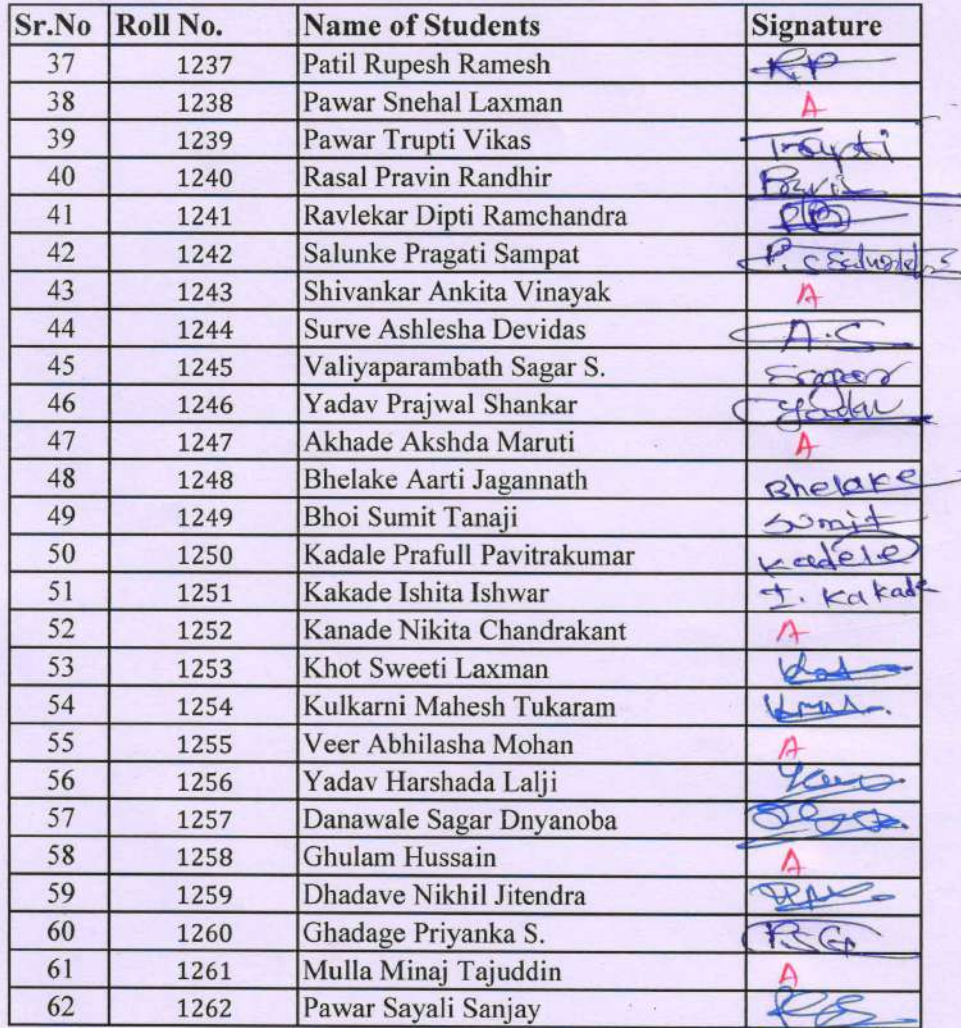 Sr.No Roll No. Name of Students Signature
37 1237 Patil Rupesh Ramesh R.P
38 1238 Pawar Snehal Laxman A
39 1239 Pawar Trupti Vikas Trupti
40 1240 Rasal Pravin Randhir
41 1241 Ravlekar Dipti Ramchandra
42 1242 Salunke Pragati Sampat
43 1243 Shivankar Ankita Vinayak A
44 1244 Surve Ashlesha Devidas A.S
45 1245 Valiyaparambath Sagar S.
46 1246 Yadav Prajwal Shankar Yadav
47 1247 Akhade Akshda Maruti A
48 1248 Bhelake Aarti Jagannath Bhelake
49 1249 Bhoi Sumit Tanaji Sumit
50 1250 Kadale Prafull Pavitrakumar
51 1251 Kakade Ishita Ishwar I. Kakade
52 1252 Kanade Nikita Chandrakant A
53 1253 Khot Sweeti Laxman
54 1254 Kulkarni Mahesh Tukaram
55 1255 Veer Abhilasha Mohan A
56 1256 Yadav Harshada Lalji
57 1257 Danawale Sagar Dnyanoba
58 1258 Ghulam Hussain A
59 1259 Dhadave Nikhil Jitendra
60 1260 Ghadage Priyanka S. P.S.G.
61 1261 Mulla Minaj Tajuddin A
62 1262 Pawar Sayali Sanjay